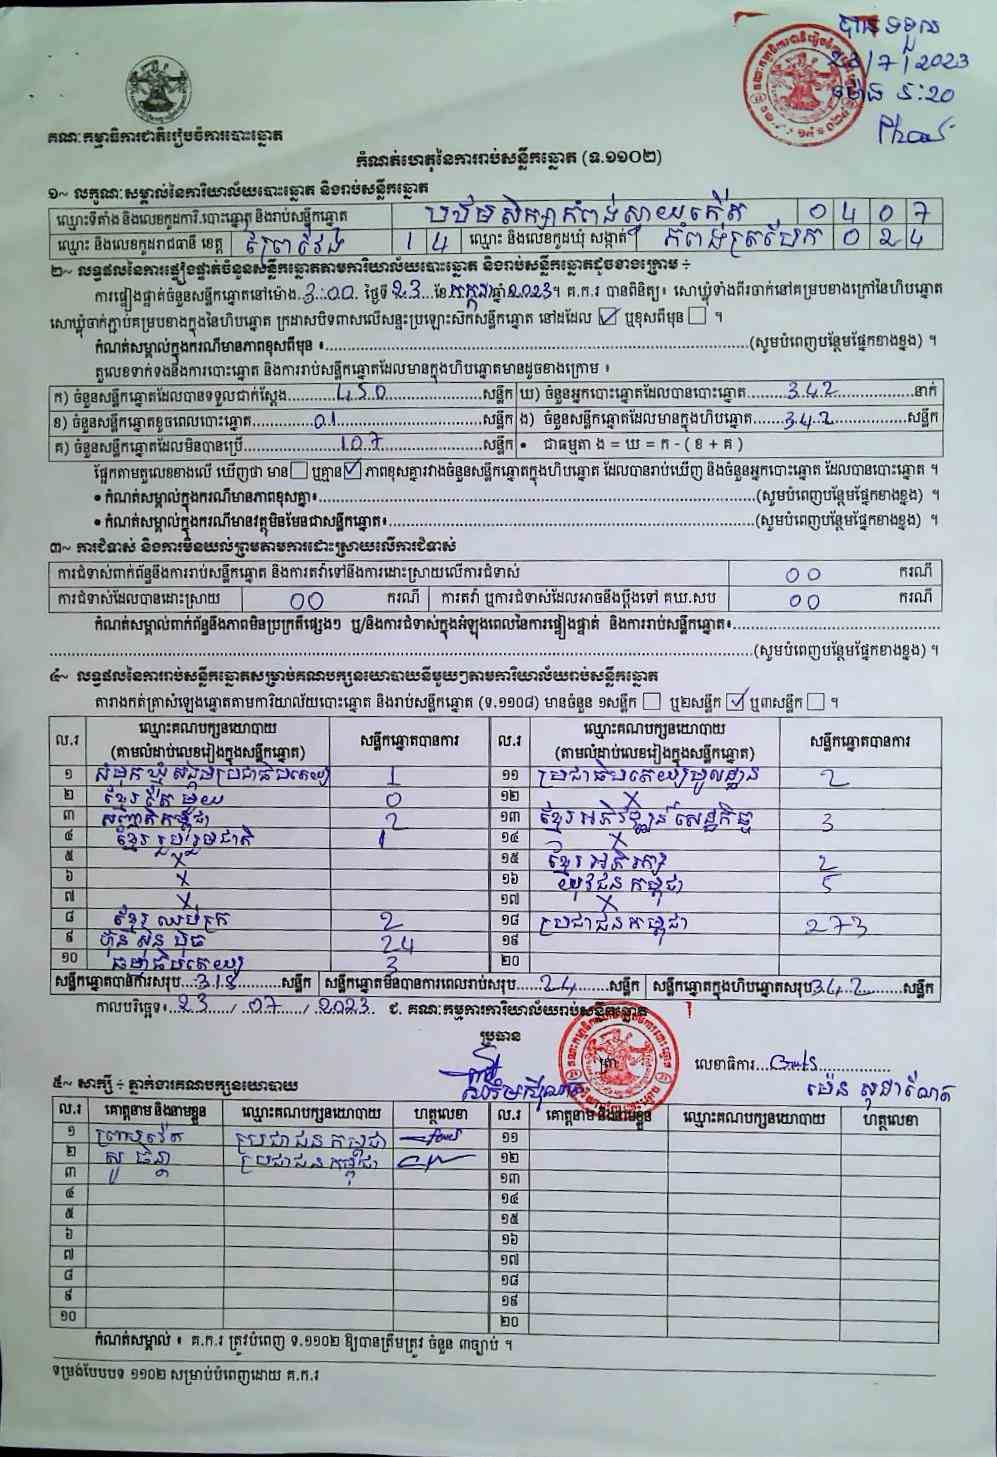 បានទទួល
23/7/2023
ម៉ោង ៩:20
គណៈកម្មាធិការជាតិរៀបចំការបោះឆ្នោត
កំណត់ហេតុនៃការរាប់សន្លឹកឆ្នោត (ទ.១១០២)
១~ លក្ខណៈសម្គាល់នៃការិយាល័យបោះឆ្នោត និងរាប់សន្លឹកឆ្នោត
ឈ្មោះទីតាំង និងលេខកូដការិ.បោះឆ្នោត និងរាប់សន្លឹកឆ្នោត បឋមសិក្សាកំពង់ស្វាយកើត 0 4 0 7
ឈ្មោះ និងលេខកូដរាជធានី ខេត្ត ព្រៃវែង 1 4 ឈ្មោះ និងលេខកូដឃុំ សង្កាត់ កំពង់ត្របែក 0 2 4
២~ លទ្ធផលនៃការផ្ទៀងផ្ទាត់ចំនួនសន្លឹកឆ្នោតតាមការិយាល័យបោះឆ្នោត និងរាប់សន្លឹកឆ្នោតដូចខាងក្រោម ÷
ការផ្ទៀងផ្ទាត់ចំនួនសន្លឹកឆ្នោតនៅម៉ោង 3:00 ថ្ងៃទី 23 ខែ កក្កដា ឆ្នាំ 2023។ គ.ក.រ បានពិនិត្យ៖ សោឃ្លុំទាំងពីរចាក់នៅគម្របខាងក្រៅនៃហិបឆ្នោត
សោឃ្លុំចាក់ភ្ជាប់គម្របខាងក្នុងនៃហិបឆ្នោត ក្រដាសបិទពាសលើសន្ទះប្រឡោះស៊កសន្លឹកឆ្នោត នៅដដែល ☑ ឬខុសពីមុន ☐ ។
កំណត់សម្គាល់ក្នុងករណីមានភាពខុសពីមុន ៖ (សូមបំពេញបន្ថែមផ្នែកខាងខ្នង) ។
តួលេខទាក់ទងនឹងការបោះឆ្នោត និងការរាប់សន្លឹកឆ្នោតដែលមានក្នុងហិបឆ្នោតមានដូចខាងក្រោម ៖
ក) ចំនួនសន្លឹកឆ្នោតដែលបានទទួលជាក់ស្តែង 450 សន្លឹក ឃ) ចំនួនអ្នកបោះឆ្នោតដែលបានបោះឆ្នោត 342 នាក់
ខ) ចំនួនសន្លឹកឆ្នោតខូចពេលបោះឆ្នោត 01 សន្លឹក ង) ចំនួនសន្លឹកឆ្នោតដែលមានក្នុងហិបឆ្នោត 342 សន្លឹក
គ) ចំនួនសន្លឹកឆ្នោតដែលមិនបានប្រើ 107 សន្លឹក • ជាធម្មតា ង = ឃ = ក - ( ខ + គ )
ផ្អែកតាមតួលេខខាងលើ ឃើញថា មាន ☐ ឬគ្មាន ☑ ភាពខុសគ្នារវាងចំនួនសន្លឹកឆ្នោតក្នុងហិបឆ្នោត ដែលបានរាប់ឃើញ និងចំនួនអ្នកបោះឆ្នោត ដែលបានបោះឆ្នោត ។
• កំណត់សម្គាល់ក្នុងករណីមានភាពខុសគ្នា៖ (សូមបំពេញបន្ថែមផ្នែកខាងខ្នង) ។
• កំណត់សម្គាល់ក្នុងករណីមានវត្ថុមិនមែនជាសន្លឹកឆ្នោត៖ (សូមបំពេញបន្ថែមផ្នែកខាងខ្នង) ។
៣~ ការជំទាស់ និងការមិនយល់ព្រមតាមការដោះស្រាយលើការជំទាស់
ការជំទាស់ពាក់ព័ន្ធនឹងការរាប់សន្លឹកឆ្នោត និងការតវ៉ាទៅនឹងការដោះស្រាយលើការជំទាស់ 00 ករណី
ការជំទាស់ដែលបានដោះស្រាយ 00 ករណី ការតវ៉ា ឬការជំទាស់ដែលអាចនឹងប្តឹងទៅ គឃ.សប 00 ករណី
កំណត់សម្គាល់ពាក់ព័ន្ធនឹងភាពមិនប្រក្រតីផ្សេងៗ ឬ/និងការជំទាស់ក្នុងអំឡុងពេលនៃការផ្ទៀងផ្ទាត់ និងការរាប់សន្លឹកឆ្នោត៖
(សូមបំពេញបន្ថែមផ្នែកខាងខ្នង) ។
៤~ លទ្ធផលនៃការរាប់សន្លឹកឆ្នោតសម្រាប់គណបក្សនយោបាយនីមួយៗតាមការិយាល័យរាប់សន្លឹកឆ្នោត
តារាងកត់ត្រាសំឡេងឆ្នោតតាមការិយាល័យបោះឆ្នោត និងរាប់សន្លឹកឆ្នោត (ទ.១១០៨) មានចំនួន ១សន្លឹក ☐ ឬ២សន្លឹក ☑ ឬ៣សន្លឹក ☐ ។
ល.រ ឈ្មោះគណបក្សនយោបាយ (តាមលំដាប់លេខរៀងក្នុងសន្លឹកឆ្នោត) សន្លឹកឆ្នោតបានការ ល.រ ឈ្មោះគណបក្សនយោបាយ (តាមលំដាប់លេខរៀងក្នុងសន្លឹកឆ្នោត) សន្លឹកឆ្នោតបានការ
១ សំបុកឃ្មុំសង្គមប្រជាធិបតេយ្យ 1 ១១ ប្រជាធិបតេយ្យមូលដ្ឋាន 2
២ ខ្មែរតែមួយ 0 ១២ X
៣ សញ្ជាតិកម្ពុជា 2 ១៣ ខ្មែរអភិវឌ្ឍន៍សេដ្ឋកិច្ច 3
៤ ខ្មែររួបរួមជាតិ 1 ១៤ X
៥ X ១៥ ខ្មែរអភិរក្ស 2
៦ X ១៦ យុវជនកម្ពុជា 5
៧ X ១៧ X
៨ ខ្មែរឈប់ក្រ 2 ១៨ ប្រជាជនកម្ពុជា 273
៩ ហ៊្វុនស៊ិនប៉ិច 24 ១៩
១០ ធម្មាធិបតេយ្យ 3 ២០
សន្លឹកឆ្នោតបានការសរុប 318 សន្លឹក សន្លឹកឆ្នោតមិនបានការពេលរាប់សរុប 24 សន្លឹក សន្លឹកឆ្នោតក្នុងហិបឆ្នោតសរុប 342 សន្លឹក
កាលបរិច្ឆេទ៖ 23 / 07 / 2023 ជ. គណៈកម្មការការិយាល័យរាប់សន្លឹកឆ្នោត
ប្រធាន
ត្រា លេខាធិការ
ម៉េន សុជាណែត
៥~ សាក្សី ÷ ភ្នាក់ងារគណបក្សនយោបាយ
ល.រ គោត្តនាម និងនាមខ្លួន ឈ្មោះគណបក្សនយោបាយ ហត្ថលេខា ល.រ គោត្តនាម និងនាមខ្លួន ឈ្មោះគណបក្សនយោបាយ ហត្ថលេខា
១ ប្រជាជនកម្ពុជា ១១
២ សូ ធិន្តា ប្រជាជនកម្ពុជា ១២
៣ ១៣
៤ ១៤
៥ ១៥
៦ ១៦
៧ ១៧
៨ ១៨
៩ ១៩
១០ ២០
កំណត់សម្គាល់ ៖ គ.ក.រ ត្រូវបំពេញ ទ.១១០២ ឱ្យបានត្រឹមត្រូវ ចំនួន ៣ច្បាប់ ។
ទម្រង់បែបបទ ១១០២ សម្រាប់បំពេញដោយ គ.ក.រ